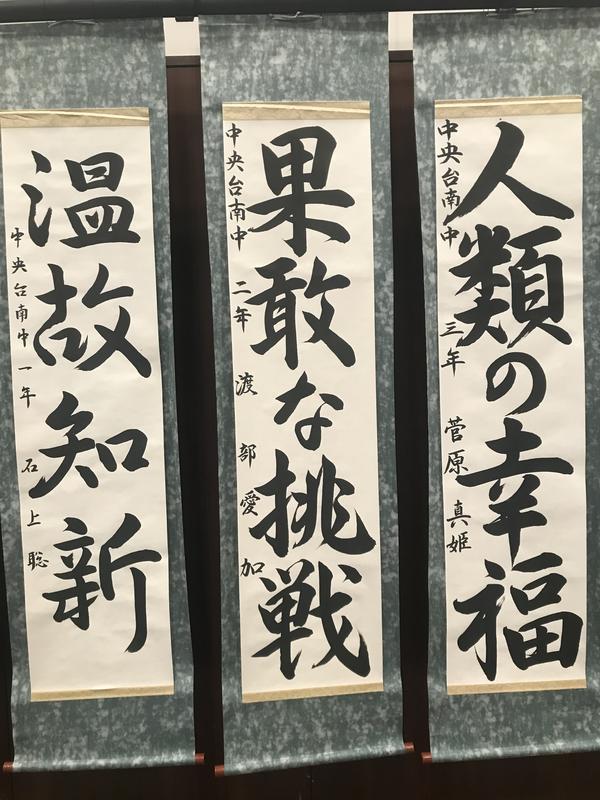 人類の幸福
中央台南中 三年 菅原真姫
果敢な挑戦
中央台南中 二年 渡部愛加
温故知新
中央台南中 一年 石上聡